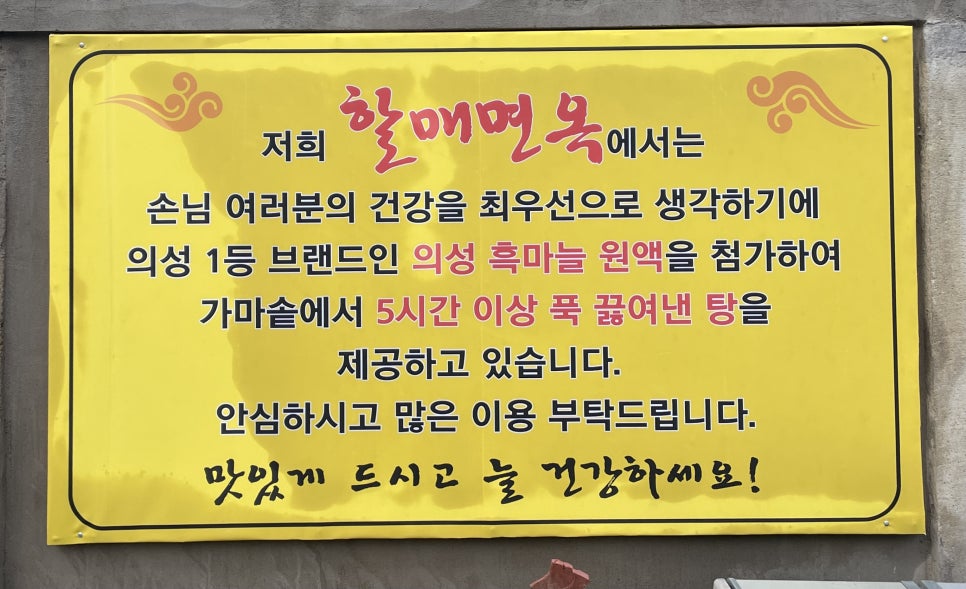 저희 할매면옥에서는
손님 여러분의 건강을 최우선으로 생각하기에
의성 1등 브랜드인 의성 흑마늘 원액을 첨가하여
가마솥에서 5시간 이상 푹 끓여낸 탕을
제공하고 있습니다.
안심하시고 많은 이용 부탁드립니다.
맛있게 드시고 늘 건강하세요!